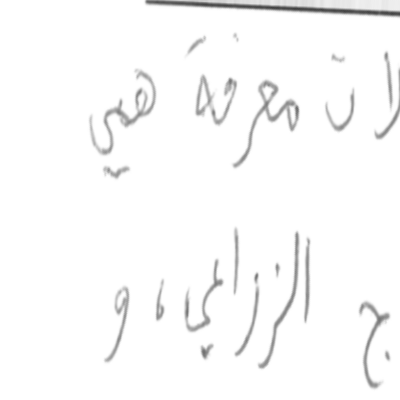 لات معرفة هي
ج الزرابي، و